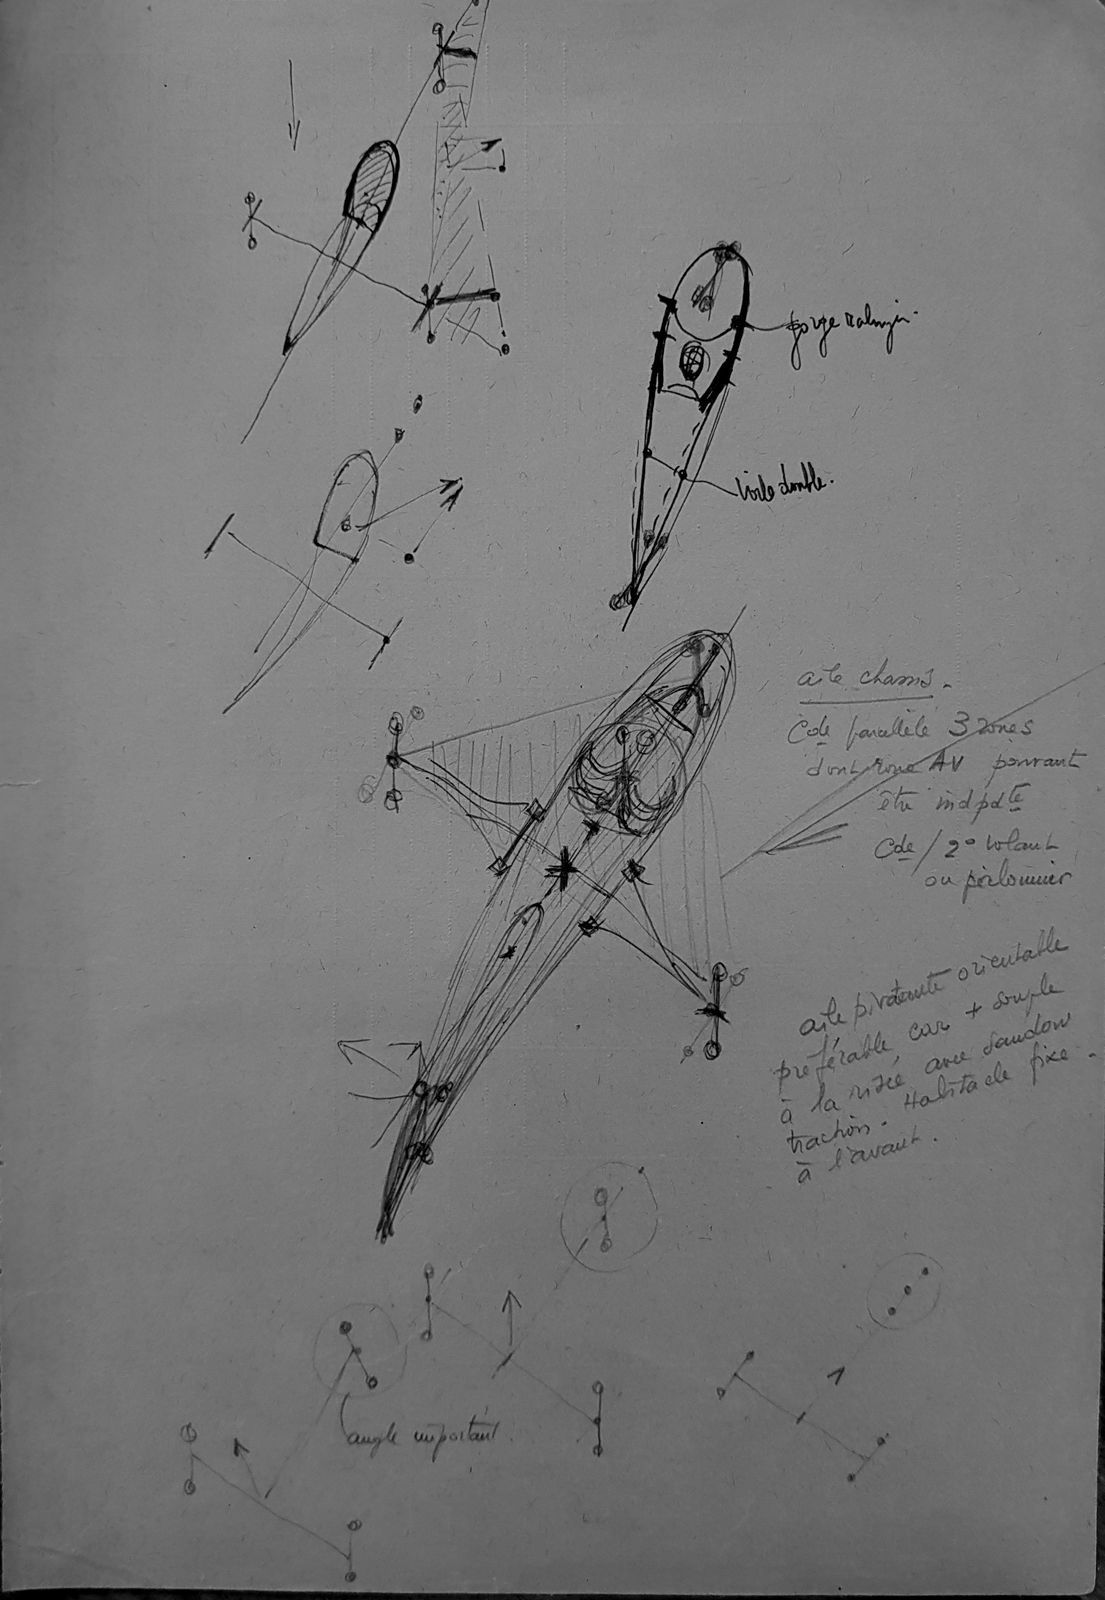 gorge ralingue.
Voile double.
aile chassis.
Cde parallèle 3 zones
dont zone AV pouvant
être indpdte
Cde / 2° volant
ou palonnier
aile pivotante orientable
préférable, car + souple
à la risée, avec sandow
traction. Habitacle fixe.
à l'avant.
angle important.